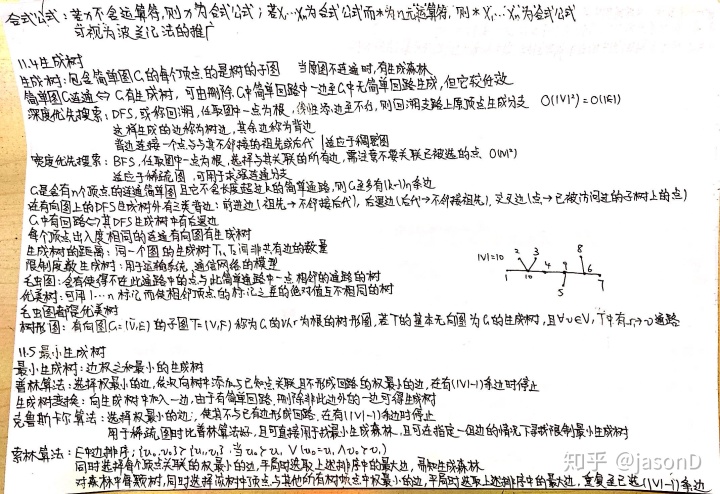 合式公式：若x不含运算符，则x为合式公式；若X₁…Xₙ为合式公式而*为n元运算符，则*X₁…Xₙ为合式公式
可视为波兰记法的推广
11.4生成树
生成树：包含简单图G的每个顶点的是树的子图 当原图不连通时，有生成森林
简单图G连通⇔G有生成树，可由删除G中简单回路中一边至G中无简单回路生成，但它较低效
深度优先搜索：DFS，或称回溯，任取图中一点为根，添边至不行，则回溯支路上原顶点生成分支 O(|V|²)=O(|E|)
这样生成的边称为树边，其余边称为背边
背边连接一个点与其不邻接的祖先或后代 适应于稠密图
宽度优先搜索：BFS，任取图中一点为根，选择与其关联的所有边，需注意不要关联已被选的点 O(|V|²)
适应于稀疏图，可用于求强连通分支
G是含有n个顶点的连通简单图且它不含长度超过k的简单通路，则G至多有(k-1)n条边
在有向图上的DFS生成树外有三类背边：前进边(祖先→不邻接后代)，后退边(后代→不邻接祖先)，交叉边(点→已被访问过的子树上的点)
G中有回路⇔其DFS生成树中有后退边
每个顶点出入度相同的连通有向图有生成树
生成树的距离：同一个图的生成树T₁、T₂间非共有边的数量
限制度数生成树：用于运输系统、通信网络的模型
毛虫图：含有使得不在此通路中的点与此简单通路中一点相邻的通路的树
优美树：可用1…n标记而使相邻顶点的标记之差的绝对值互不相同的树
毛虫图都是优美树
|V|=10
2 3 8
4 9
1 10 6 7
5
树形图：有向图G=(V,E)的子图T=(V,F)称为G的以r为根的树形图，若T的基本无向图为G的生成树，且∀v∈V，T中有r→v通路
11.5最小生成树
最小生成树：边权之和最小的生成树
普林算法：选择权最小的边，依次向树中添加与已知点关联且不形成回路的权最小的边，在有(|V|-1)条边时停止
生成树变换：向生成树中加入一边，由于有简单回路，删除非此边外的一边可得生成树
克鲁斯卡尔算法：选择权最小的边，使其不与已有边形成回路，在有(|V|-1)条边时停止
用于稀疏图时比普林算法好，且可直接用于找最小生成森林，且可在指定一组边的情况下寻找限制最小生成树
索林算法：E中边排序：{u₀,v₀}>{u₁,v₁}当u₀>u₁∨(u₀=u₁∧v₀>v₁)
同时选择每个顶点关联的权最小的边，平局时选取上述排序中的最大边，得知生成森林
对森林中每颗树，同时选择该树中顶点与其他所有树顶点中权最小的边，平局时选取上述排序中的最大边，重复至已选(|V|-1)条边
知乎 @jasonD